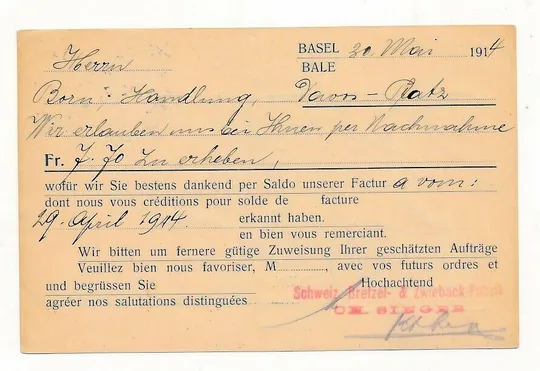 BASEL 30. Mai 1914
BALE
Herrn
Born, Handlung, Davos-Platz
Wir erlauben uns bei Ihnen per Nachnahme
Fr. 7.70 zu erheben,
wofür wir Sie bestens dankend per Saldo unserer Factur a vom:
dont nous vous créditions pour solde de facture
29. April 1914. erkannt haben.
en bien vous remerciant.
Wir bitten um fernere gütige Zuweisung Ihrer geschätzten Aufträge
Veuillez bien nous favoriser, M, avec vos futurs ordres et
und begrüssen Sie Hochachtend
agréer nos salutations distinguées
Schweiz. Bretzel- & Zwieback-Fabrik
CH. SINGER